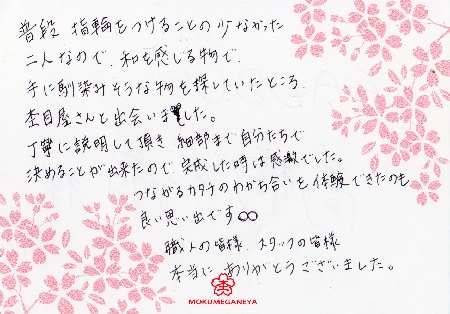 普段 指輪をつけることの少なかった
二人なので、和を感じる物で、
手に馴染みそうな物を探していたところ
杢目屋さんと出会いました。
丁寧に説明して頂き 細部まで自分たちで
決めることが出来たので、完成した時は感激でした。
つながるカタチのわかち合いを体験できたのも
良い思い出です∞
職人の皆様、スタッフの皆様
本当に ありがとうございました。
杢
MOKUMEGANEYA